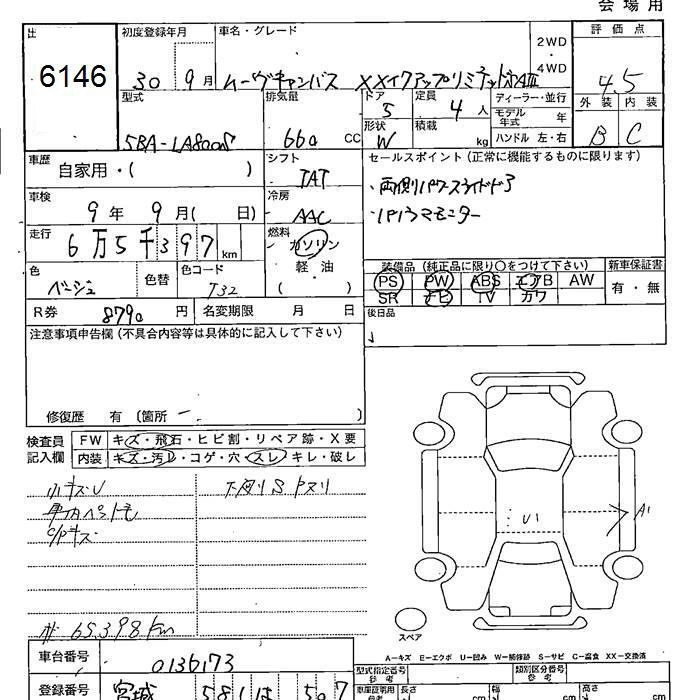 会場用
出
6146
初度登録年月
30 9月
車名・グレード
ムーヴキャンバス XXメイクアップリミテッドSAⅢ
2WD
・
4WD
評価点
4.5
外装 内装
B C
型式
5BA-LA800S
排気量
660 CC
ドア
5
定員
4 人
形状
W
積載
kg
ディーラー・並行
モデル年式 年
ハンドル 左・右
車歴
自家用・( )
シフト
IAT
セールスポイント(正常に機能するものに限ります)
・両側パワースライドドア
・パノラマモニター
車検
9年 9月( 日)
冷房
AAC
走行
6万5千397km
燃料
ガソリン
軽・油
( )
色
ベージュ
色替
色コード
T32
装備品(純正品に限り○をつけて下さい)
PS PW ABS エアB AW
SR ナビ TV カワ
新車保証書
有・無
R券 8790 円
名変期限 月 日
後日品
注意事項申告欄(不具合内容等は具体的に記入して下さい)
修復歴 有 (箇所 ー )
検査員記入欄
FW キズ・飛石・ヒビ割・リペア跡・X要
内装 キズ・汚レ・コゲ・穴・スレ・キレ・破レ
小キズU
下回りSキズリ
車内ペット毛
C/Pキズ
65,398km
U1
A1
スペア
A-キズ E-エクボ U-凹み W-補修跡 S-サビ C-腐食 XX-交換済
車台番号 0136173
登録番号 宮城 581 は 507
型式指定番号
参考
類別区分番号
参考
車庫証明用
参考
長さ cm
幅 cm
高さ cm